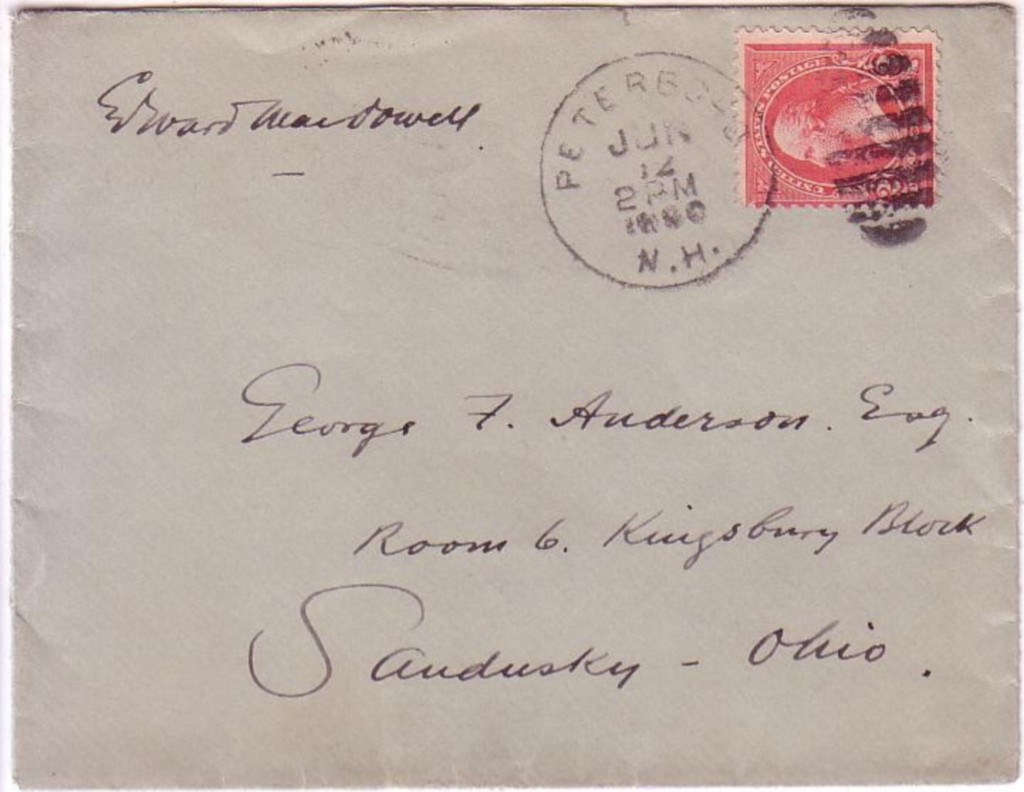 Edward MacDowell
PETERBORO
JUN
12
2 PM
N.H.
UNITED STATES POSTAGE
George F. Anderson. Esq.
Room 6. Kingsbury Block
Sandusky - Ohio.